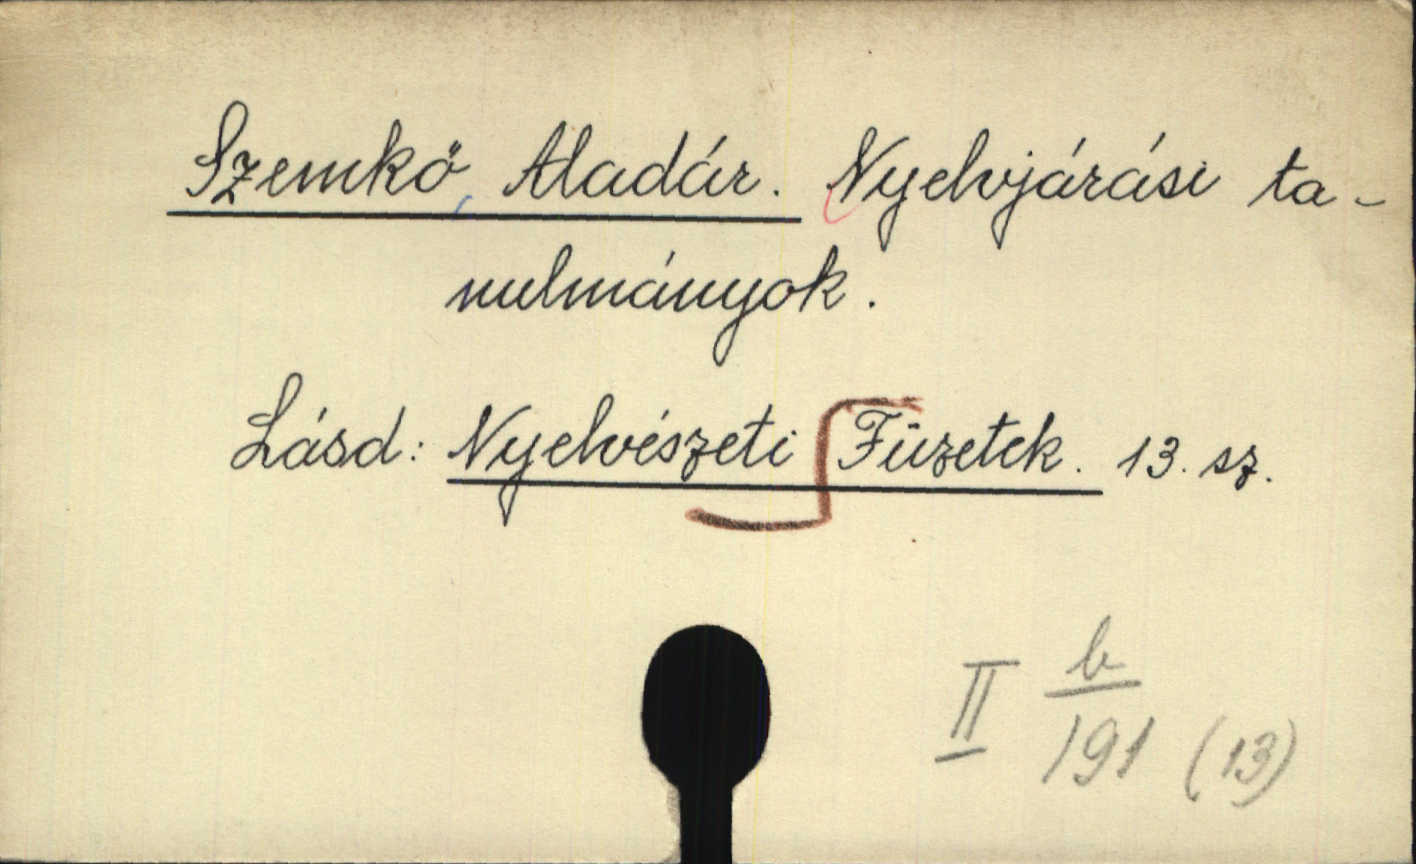 Szemkő, Aladár. Nyelvjárási ta-
nulmányok.
Lásd: Nyelvészeti Füzetek. 13. sz.
II b/191 (13)